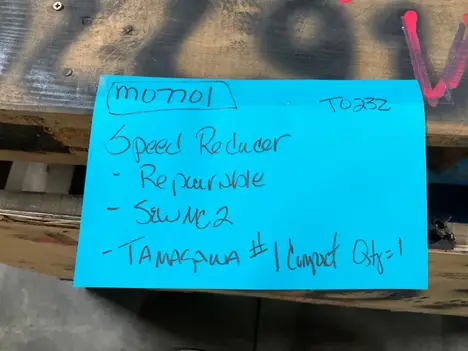 M07701
T0232
Speed Reducer
- Repairable
- Sew MC 2
- TAMAGAWA #1 Compact Qty=1